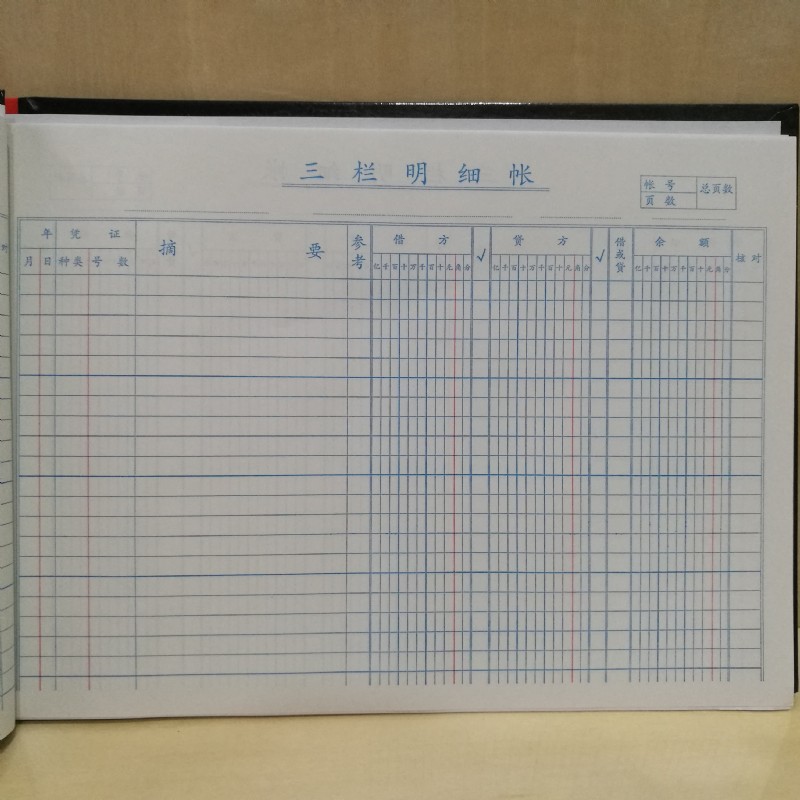 三栏明细帐
帐号 总页数
页数
年 凭证 摘要 参考 借方 √ 贷方 √ 借或贷 余额 核对
月 日 种类 号数 亿千百十万千百十元角分 亿千百十万千百十元角分 亿千百十万千百十元角分
对